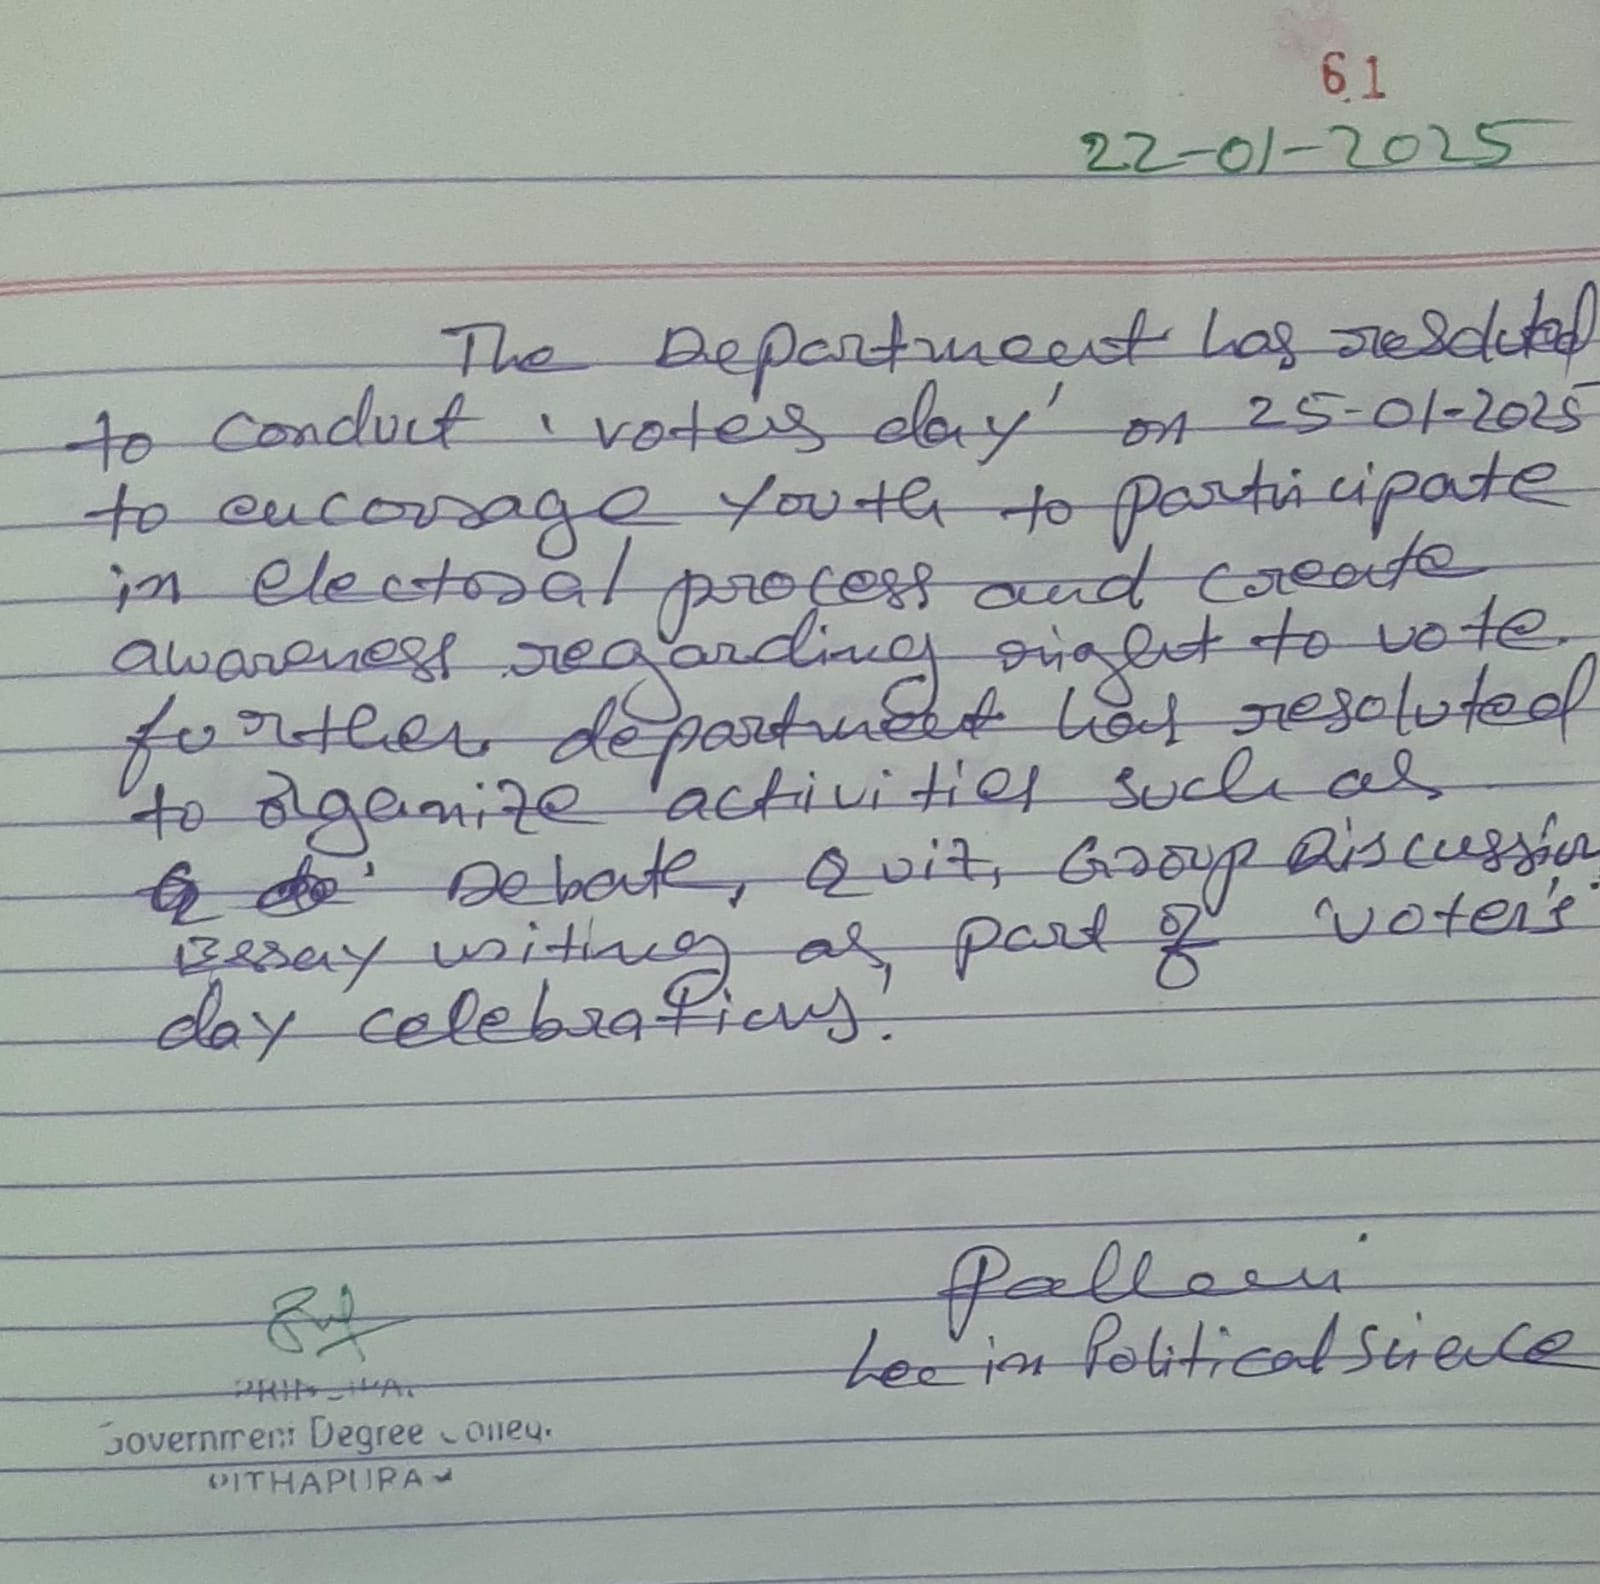 61
22-01-2025
The Department has resoluted
to conduct 'voters day' on 25-01-2025
to encourage youth to participate
in electoral process and create
awareness regarding right to vote.
further department has resoluted
to organize activities such as
Debate, Quiz, Group Discussion,
Essay writing as part of 'voter's
day celebrations'.
Pallavi
Lec in Political Science
PRINCIPAL
Government Degree College
PITHAPURAM